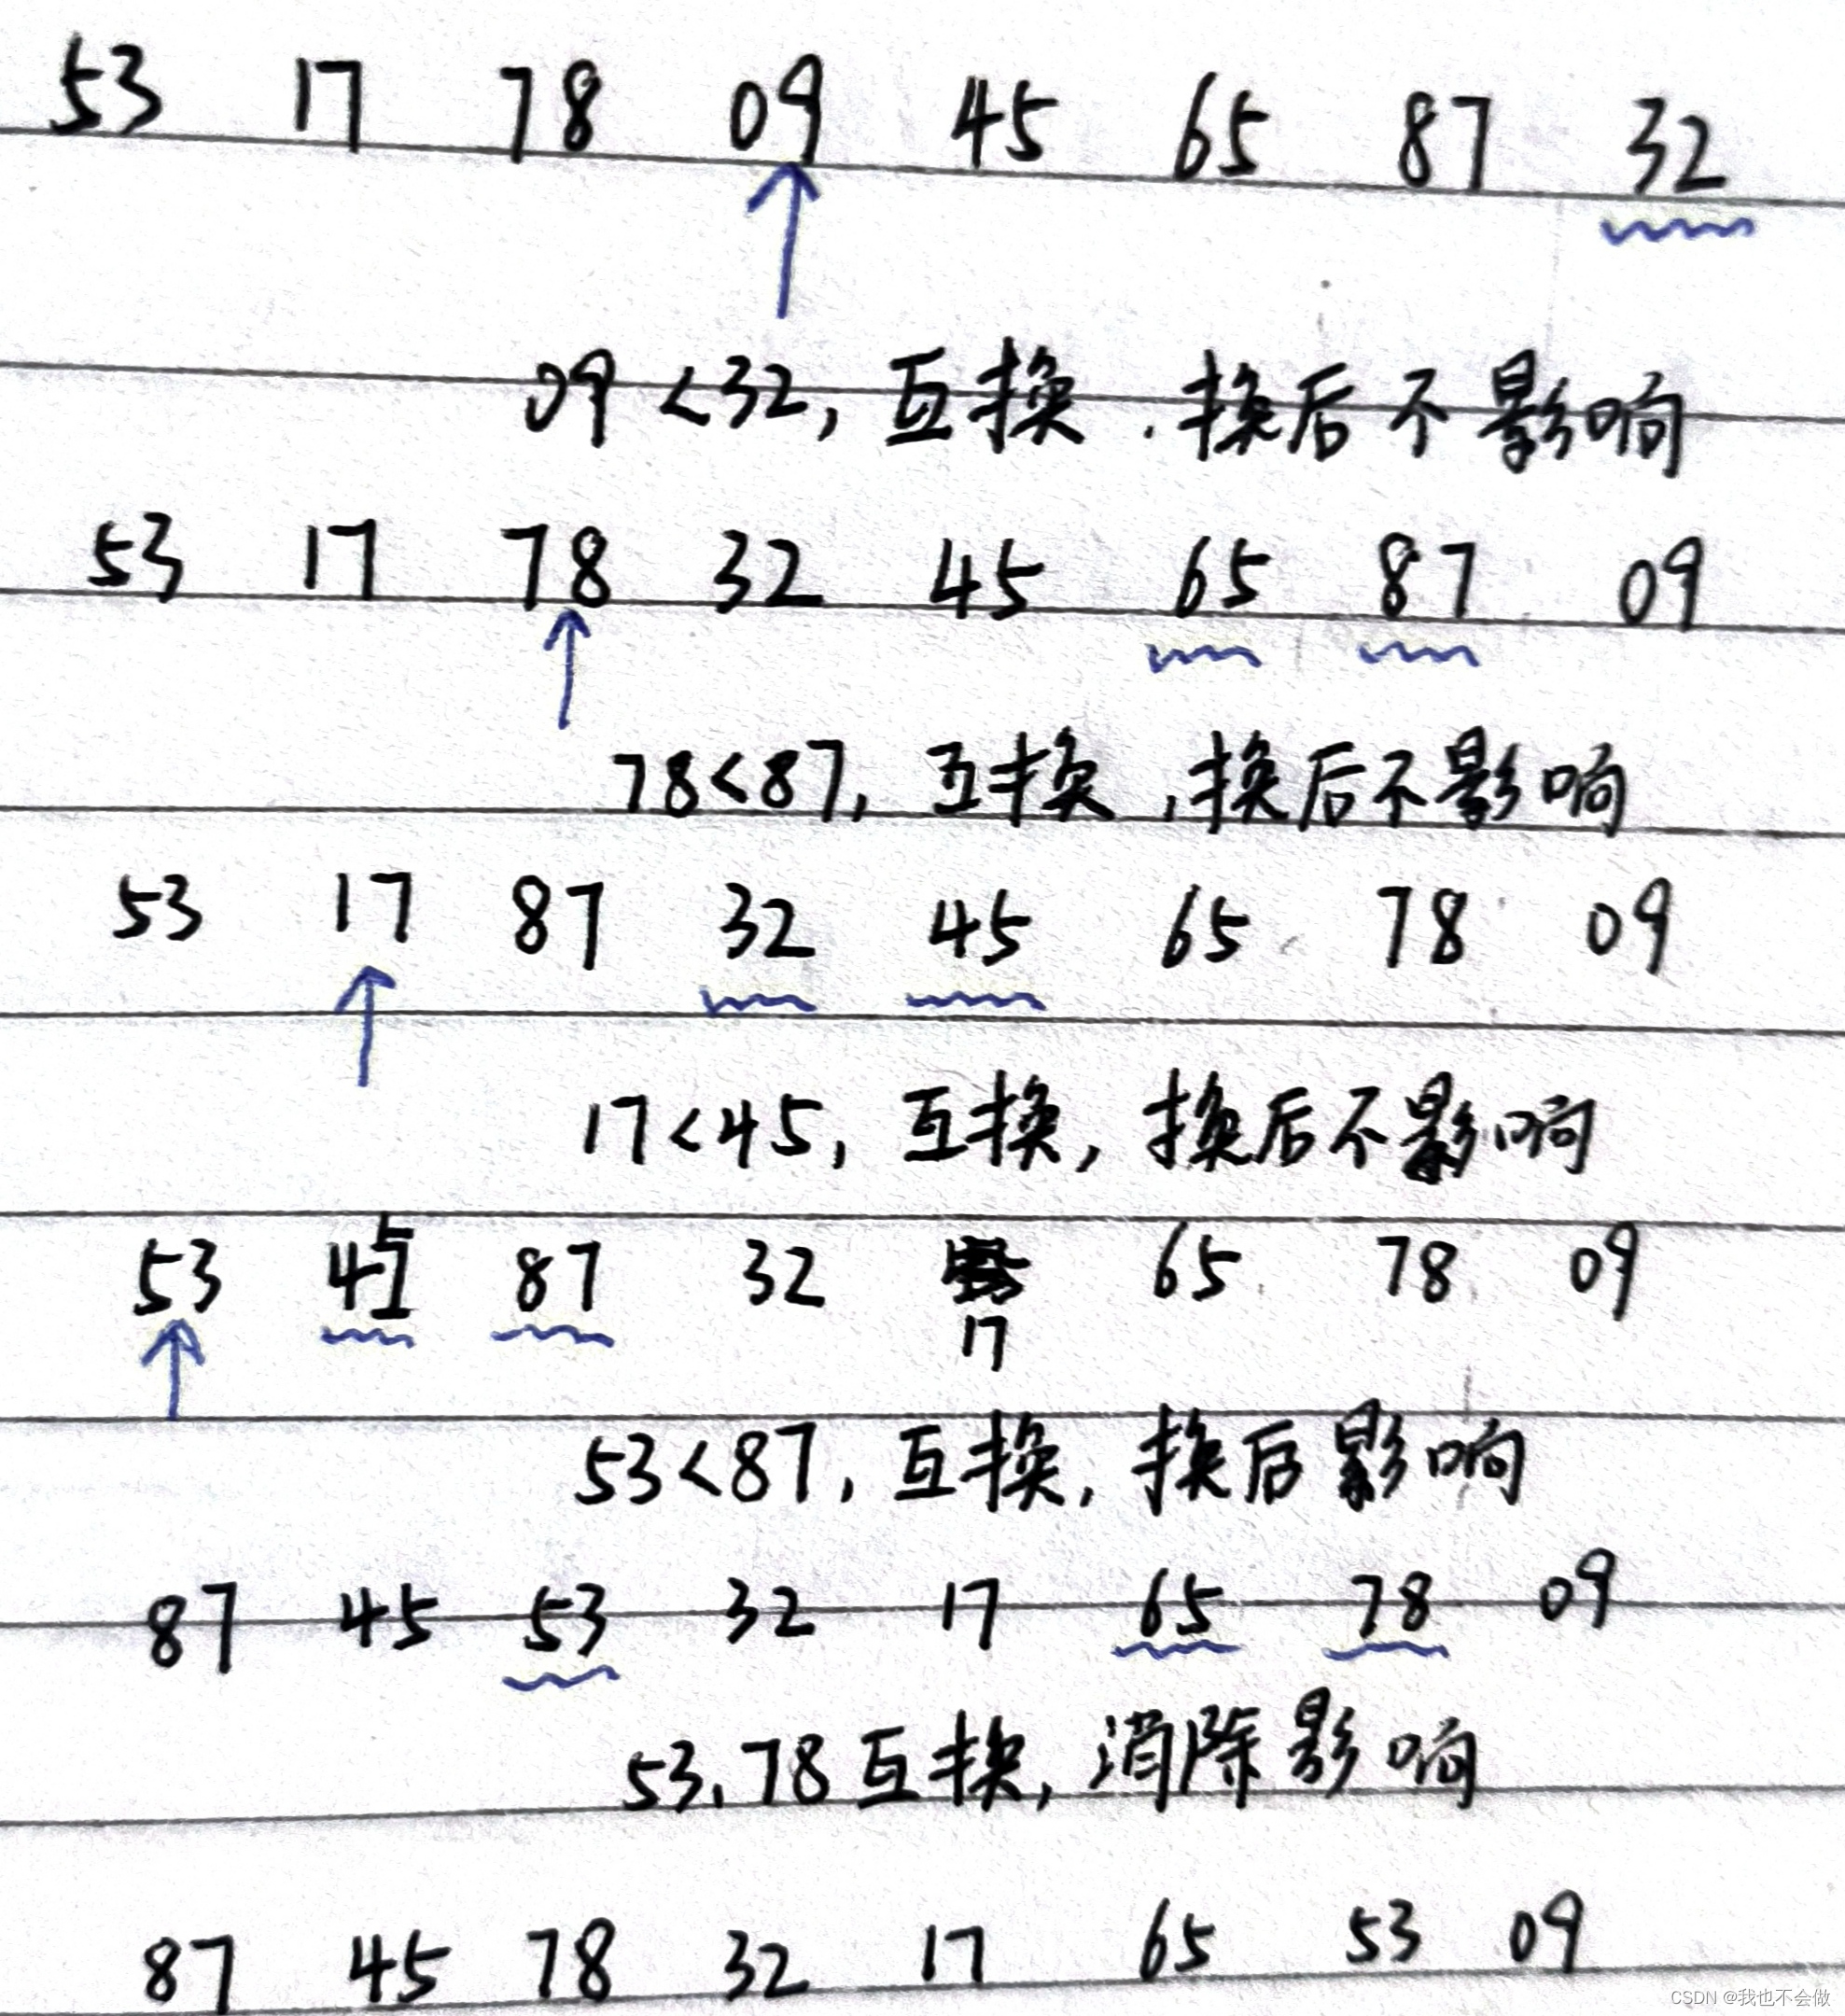 53 17 78 09 45 65 87 32
09<32, 互换.换后不影响
53 17 78 32 45 65 87 09
78<87, 互换,换后不影响
53 17 87 32 45 65 78 09
17<45, 互换, 换后不影响
53 45 87 32 65 78 09
17
53<87, 互换, 换后影响
87 45 53 32 17 65 78 09
53.78互换, 消除影响
87 45 78 32 17 65 53 09
CSDN @我也不会做